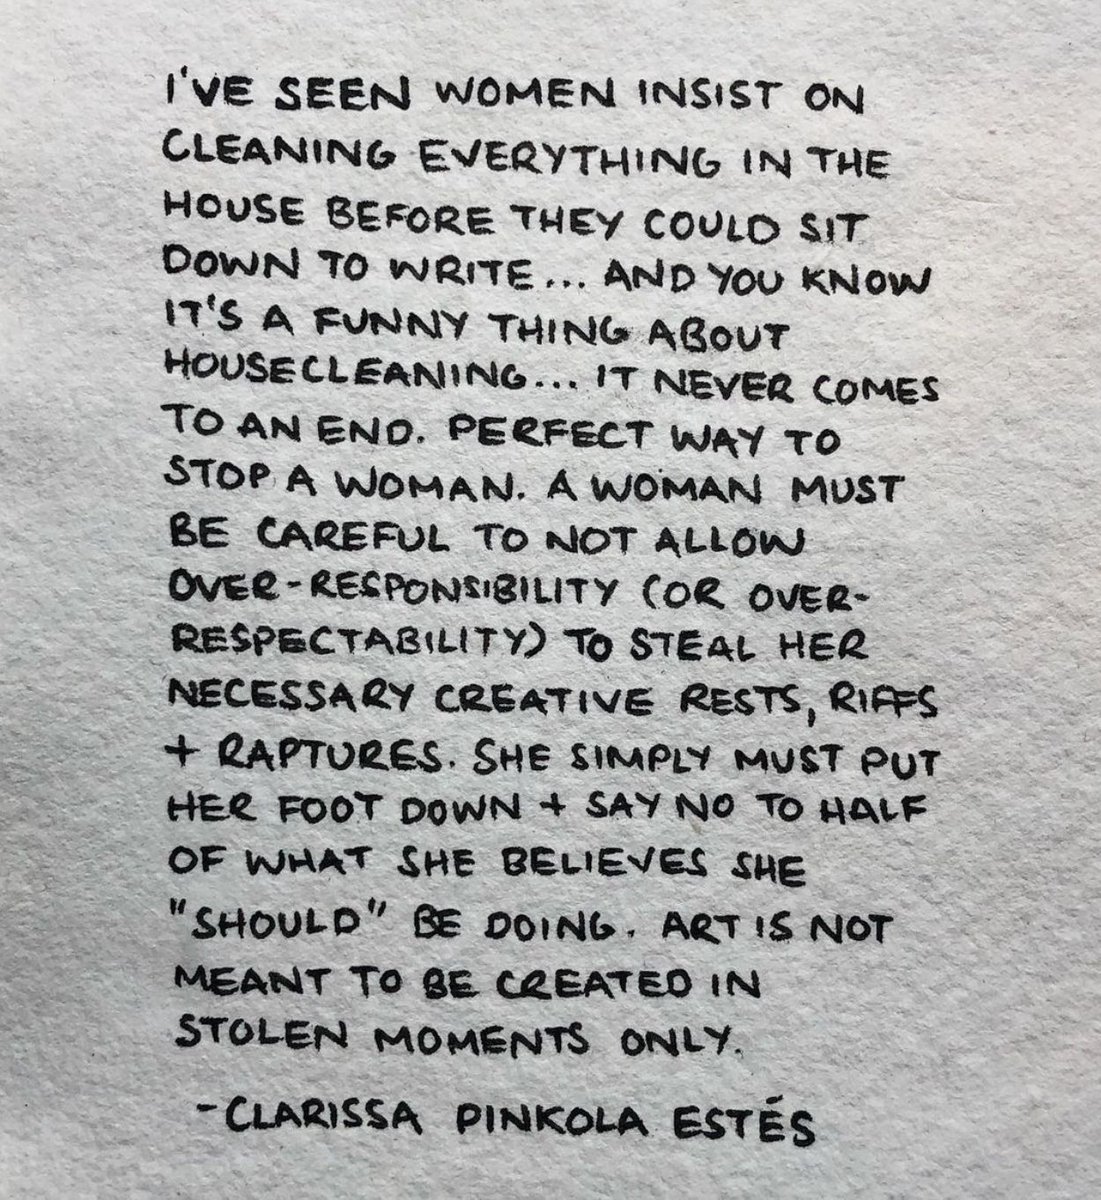 I'VE SEEN WOMEN INSIST ON
CLEANING EVERYTHING IN THE
HOUSE BEFORE THEY COULD SIT
DOWN TO WRITE... AND YOU KNOW
IT'S A FUNNY THING ABOUT
HOUSECLEANING... IT NEVER COMES
TO AN END. PERFECT WAY TO
STOP A WOMAN. A WOMAN MUST
BE CAREFUL TO NOT ALLOW
OVER-RESPONSIBILITY (OR OVER-
RESPECTABILITY) TO STEAL HER
NECESSARY CREATIVE RESTS, RIFFS
+ RAPTURES. SHE SIMPLY MUST PUT
HER FOOT DOWN + SAY NO TO HALF
OF WHAT SHE BELIEVES SHE
"SHOULD" BE DOING. ART IS NOT
MEANT TO BE CREATED IN
STOLEN MOMENTS ONLY.
-CLARISSA PINKOLA ESTÉS